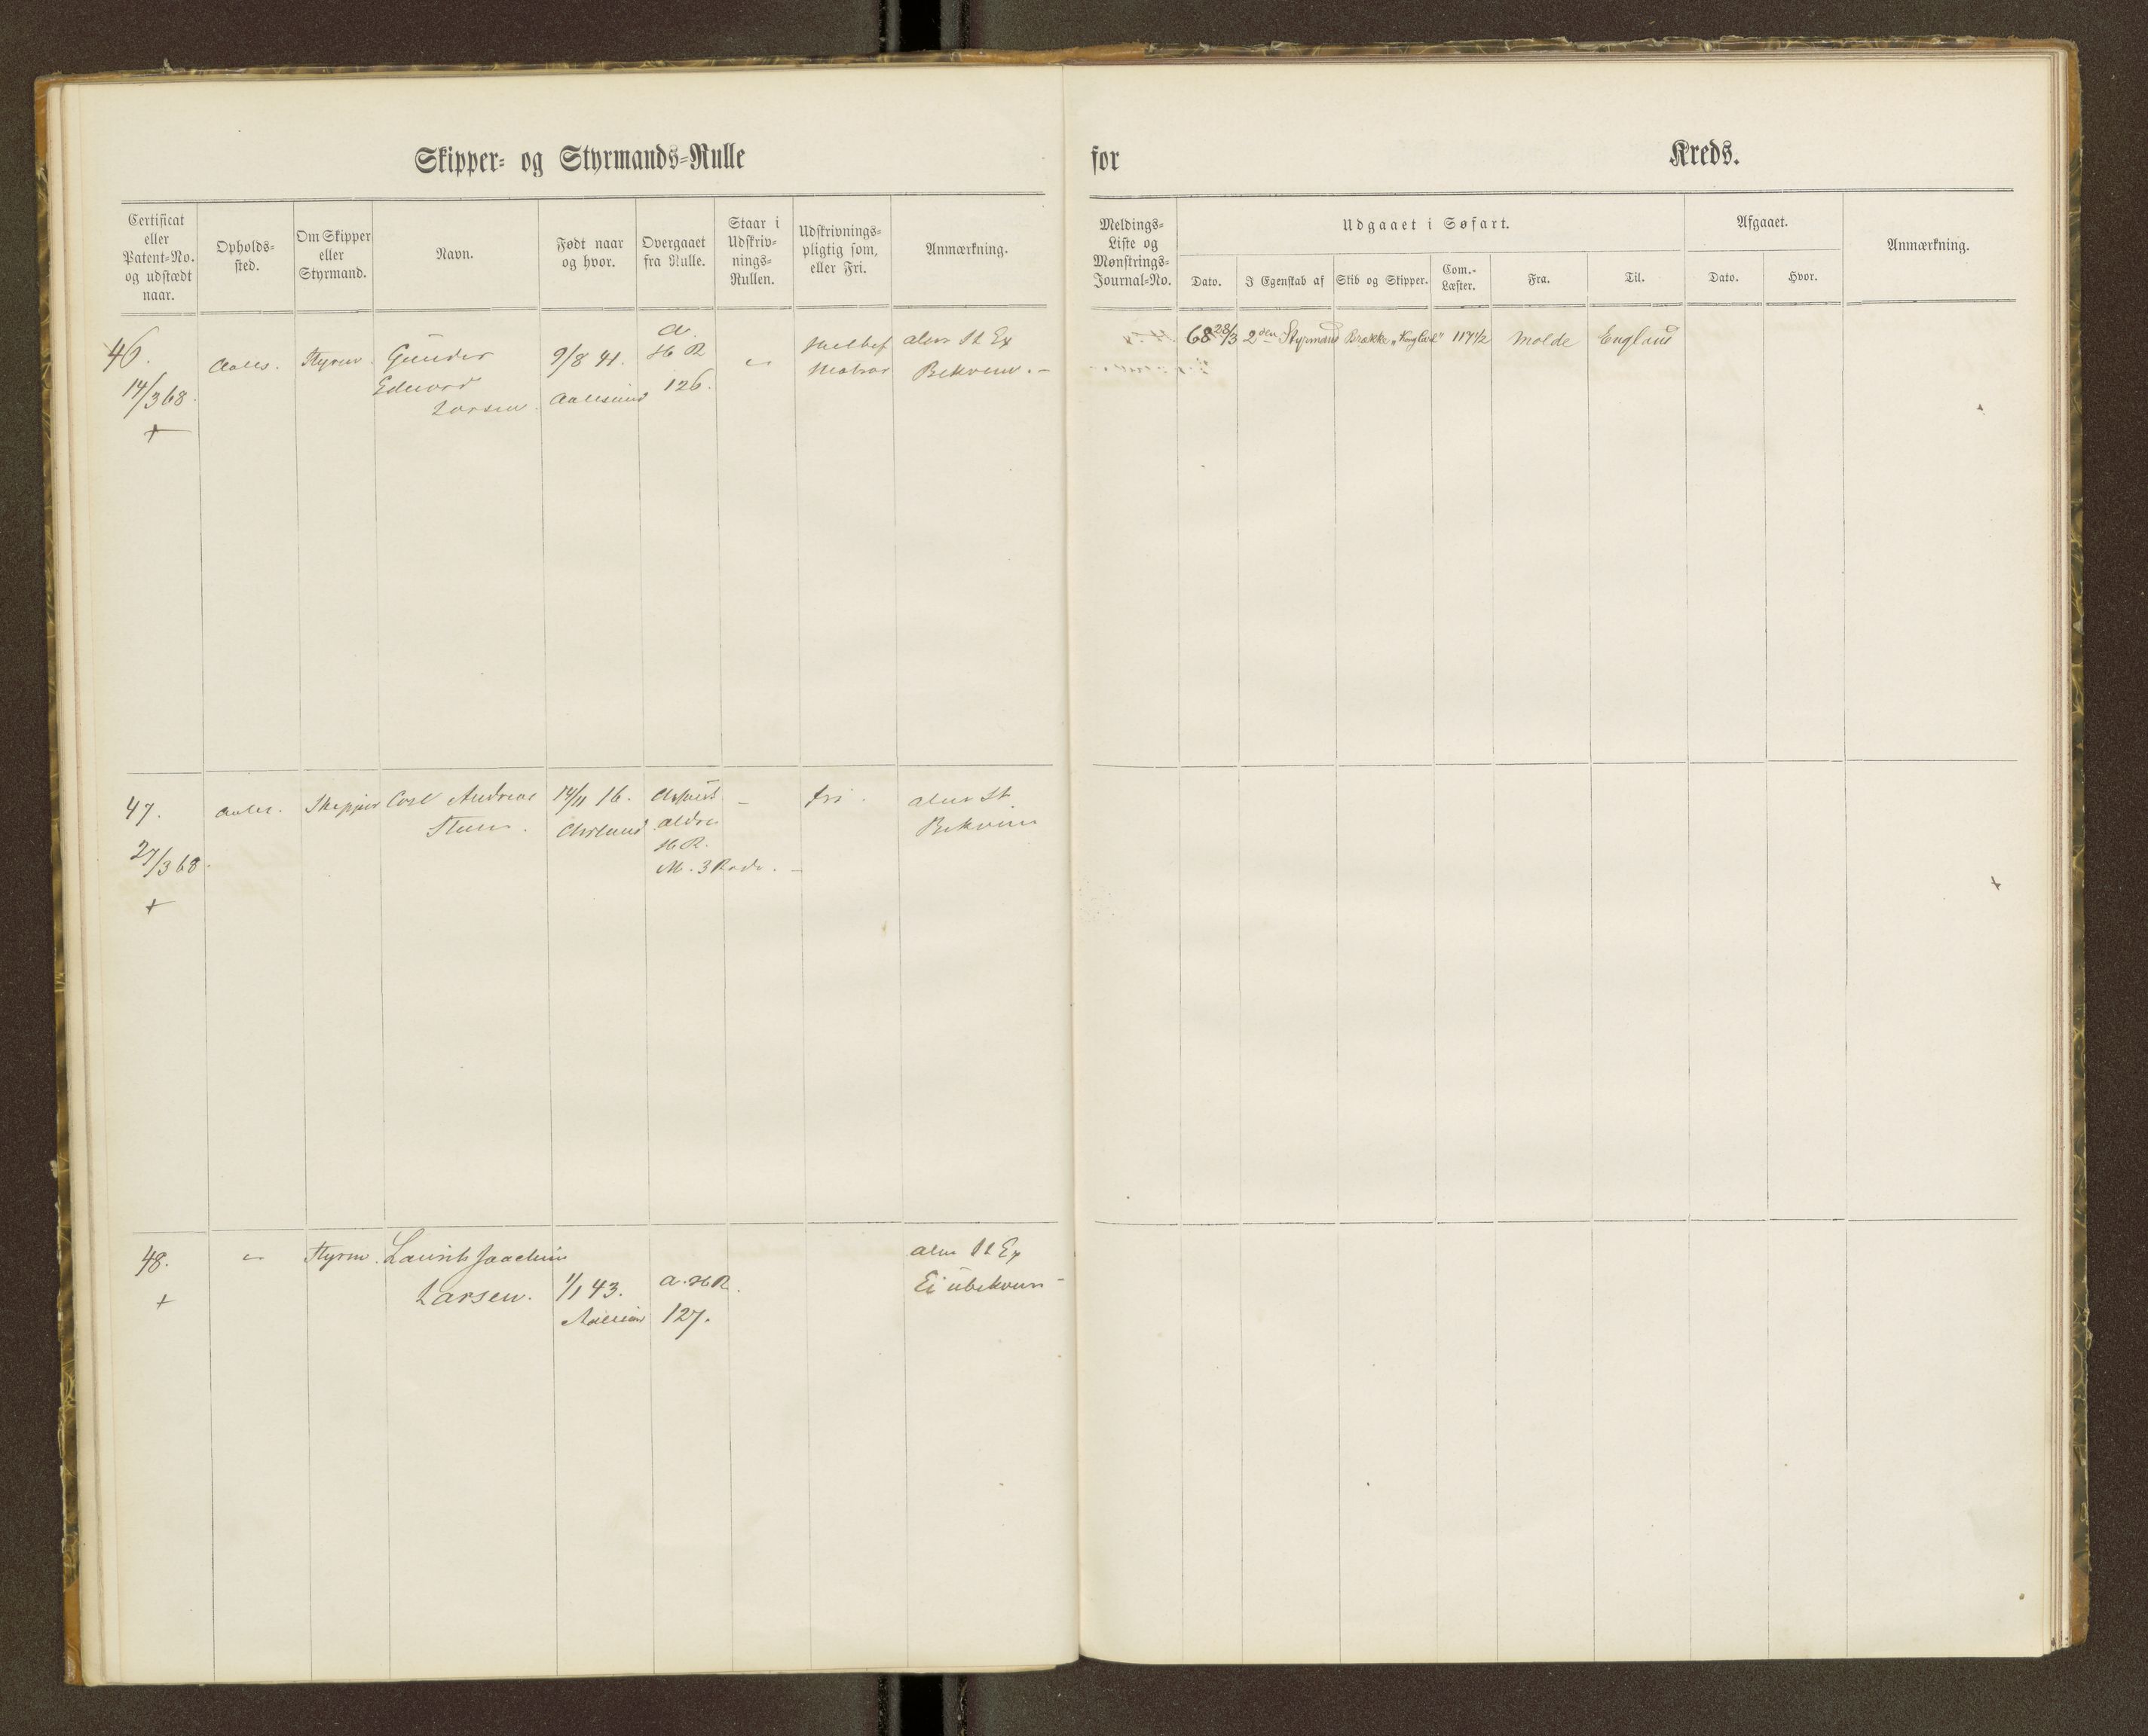 Skipper- og Styrmands-Rulle
for Kreds.
Certificat eller Patent-No. og udstædt naar.
Opholds-sted.
Om Skipper eller Styrmand.
Navn.
Født naar og hvor.
Overgaaet fra Rulle.
Staar i Udskriv-nings-Rullen.
Udskrivnings-pligtig som, eller Fri.
Anmærkning.
Meldings-Liste og Mønstrings-Journal-No.
Udgaaet i Søfart.
Dato.
I Egenskab af
Skib og Skipper.
Com.-Læster.
Fra.
Til.
Afgaaet.
Dato.
Hvor.
Anmærkning.
46.
14/3 68.
+
Aales.
Styrm.
Gunder
Edward
Larsen.
9/8 41.
Aalesund
a.
H R
126.
Matros
alm St Ex
Bekvem. -
68 28/3
2den Styrmand
Brakke
117 1/2
Molde
England
47.
27/3 68.
+
Aales.
Skipper
Carl Andreas
14/11 16.
ældre
H R.
M. 3
-
fri.
alm St
Bekvem
48.
+
Styrm.
Laurits Joachim
Larsen.
1/1 43.
a. H R.
127.
alm St Ex
Ei ubekvem -